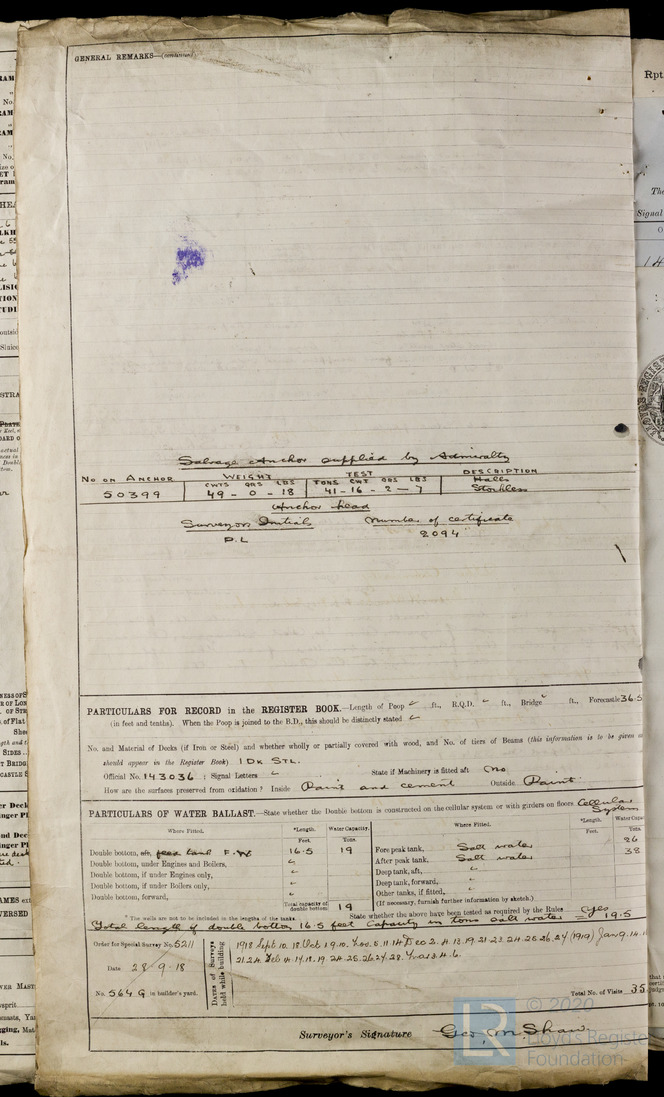 GENERAL REMARKS—(continued)
Salvage Anchor supplied by Admiralty
No on ANCHOR WEIGHT TEST DESCRIPTION
CWTS QRS LBS TONS CWT QRS LBS Halls
50399 49 - 0 - 18 41 - 16 - 2 - 7 Stockless
Anchor head
Surveyors Initials Number of certificate
P.L 2094
PARTICULARS FOR RECORD in the REGISTER BOOK.—Length of Poop ft., R.Q.D. ft., Bridge ft., Forecastle 36.5
(in feet and tenths). When the Poop is joined to the B.D., this should be distinctly stated
No. and Material of Decks (if Iron or Steel) and whether wholly or partially covered with wood, and No. of tiers of Beams (this information is to be given as
should appear in the Register Book) 1 Dk Stl.
Official No. 143036 ; Signal Letters State if Machinery is fitted aft No
How are the surfaces preserved from oxidation? Inside Paint and cement Outside Paint
PARTICULARS OF WATER BALLAST.—State whether the Double bottom is constructed on the cellular system or with girders on floors Cellular System
Where Fitted. *Length. Water Capacity. Where Fitted. *Length. Water Capac
Feet. Tons. Feet. Tons.
Double bottom, aft, feed tank F.W 16.5 19 Fore peak tank, Salt water 26
Double bottom, under Engines and Boilers, After peak tank, Salt water 38
Double bottom, if under Engines only, Deep tank, aft,
Double bottom, if under Boilers only, Deep tank, forward,
Double bottom, forward, Other tanks, if fitted,
Total capacity of double bottom 19 (If necessary, furnish further information by sketch.)
* The wells are not to be included in the lengths of the tanks. State whether the above have been tested as required by the Rules Yes
Total length of double bottom 16.5 feet Capacity in tons salt water = 19.5
Order for Special Survey No. 5211
Date 28-9-18
No. 564 G in builder's yard.
DATES of Surveys held while building
1918 Sept. 10. 18. Oct 1. 9. 10. Nov. 5. 11. 14 Dec 2. 4. 13. 19. 21. 23. 24. 25. 26. 27 (1919) Jan 9. 14.
21. 24. Feb 4. 17. 18. 19. 24. 25. 26. 27. 28. Mar 3. 4. 6.
Total No. of Visits 35
Surveyor's Signature Geo. M Shaw.
© 2020
LR
Lloyd's Register
Foundation